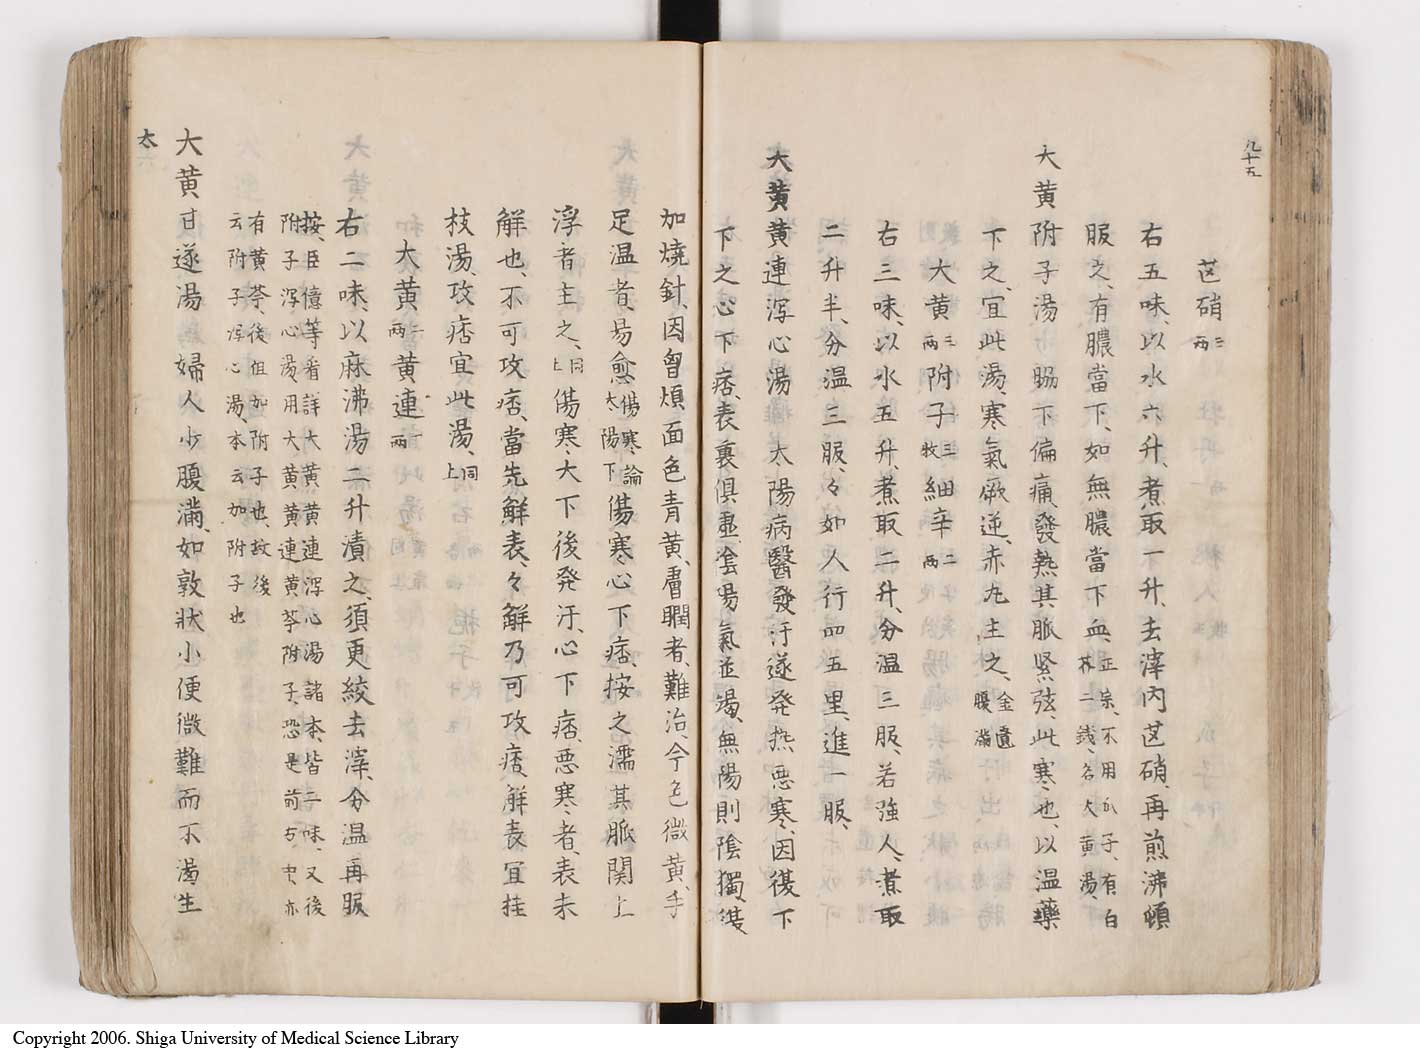 九十五
芒硝三兩
右五味、以水六升、煮取一升、去滓内芒硝、再煎沸頓
服之、有膿當下、如無膿當下血、正宗、不用瓜子、有白芥二錢、名大黄湯、
大黄附子湯脇下偏痛、發熱其脈緊弦、此寒也、以温藥
下之、宜此湯、寒氣厥逆、赤丸主之、金匱腹滿
大黄三兩附子三枚細辛二兩
右三味、以水五升、煮取二升、分温三服、若強人、煮取
二升半、分温三服、々如人行四五里、進一服、
大黄黄連瀉心湯太陽病醫發汗遂発热悪寒、因復下
下之心下痞、表裏俱虚、陰陽氣並竭、無陽則陰獨、復
加燒針、因胷煩面色青黄、膚瞤者、難治、今色微黄、手
足温者、易愈傷寒論太陽下傷寒心下痞、按之濡其脈関上
浮者主之、同上傷寒大下後発汗、心下痞、悪寒者、表未
解也、不可攻痞、當先解表、々解乃可攻痞解表宜桂
枝湯、攻痞宜此湯、同上
大黄二兩黄連一兩
右二味、以麻沸湯二升漬之、須更絞去滓、分温再服
按、臣億等看詳大黄黄連瀉心湯諸本、皆二味、又後
附子瀉心湯用大黄黄連黄芩附子、恐是前方、中亦
有黄芩、後但加附子也、故後
云附子瀉心湯、本云加附子也
大黄甘遂湯婦人少腹滿、如敦狀小便微難而不渴生
太
六